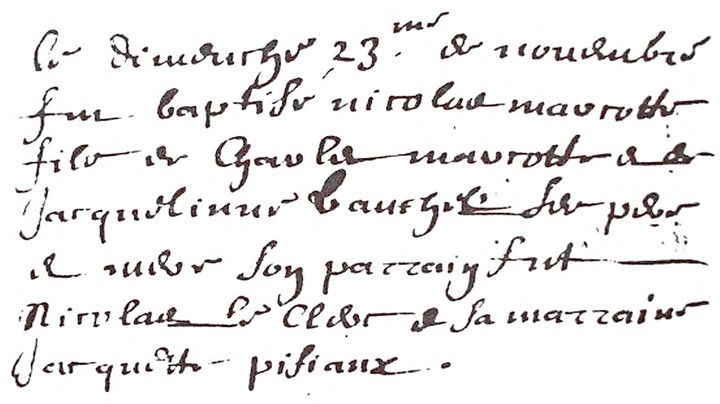 le dimenche 23.me de novembre
fut baptise nicolas marcotte
fils de Charles marcotte et de
Jacquelinne bauchel ses pere
et mere son parrain fut
Nicolas le Clerc et sa marraine
Jacquette pisiaux .